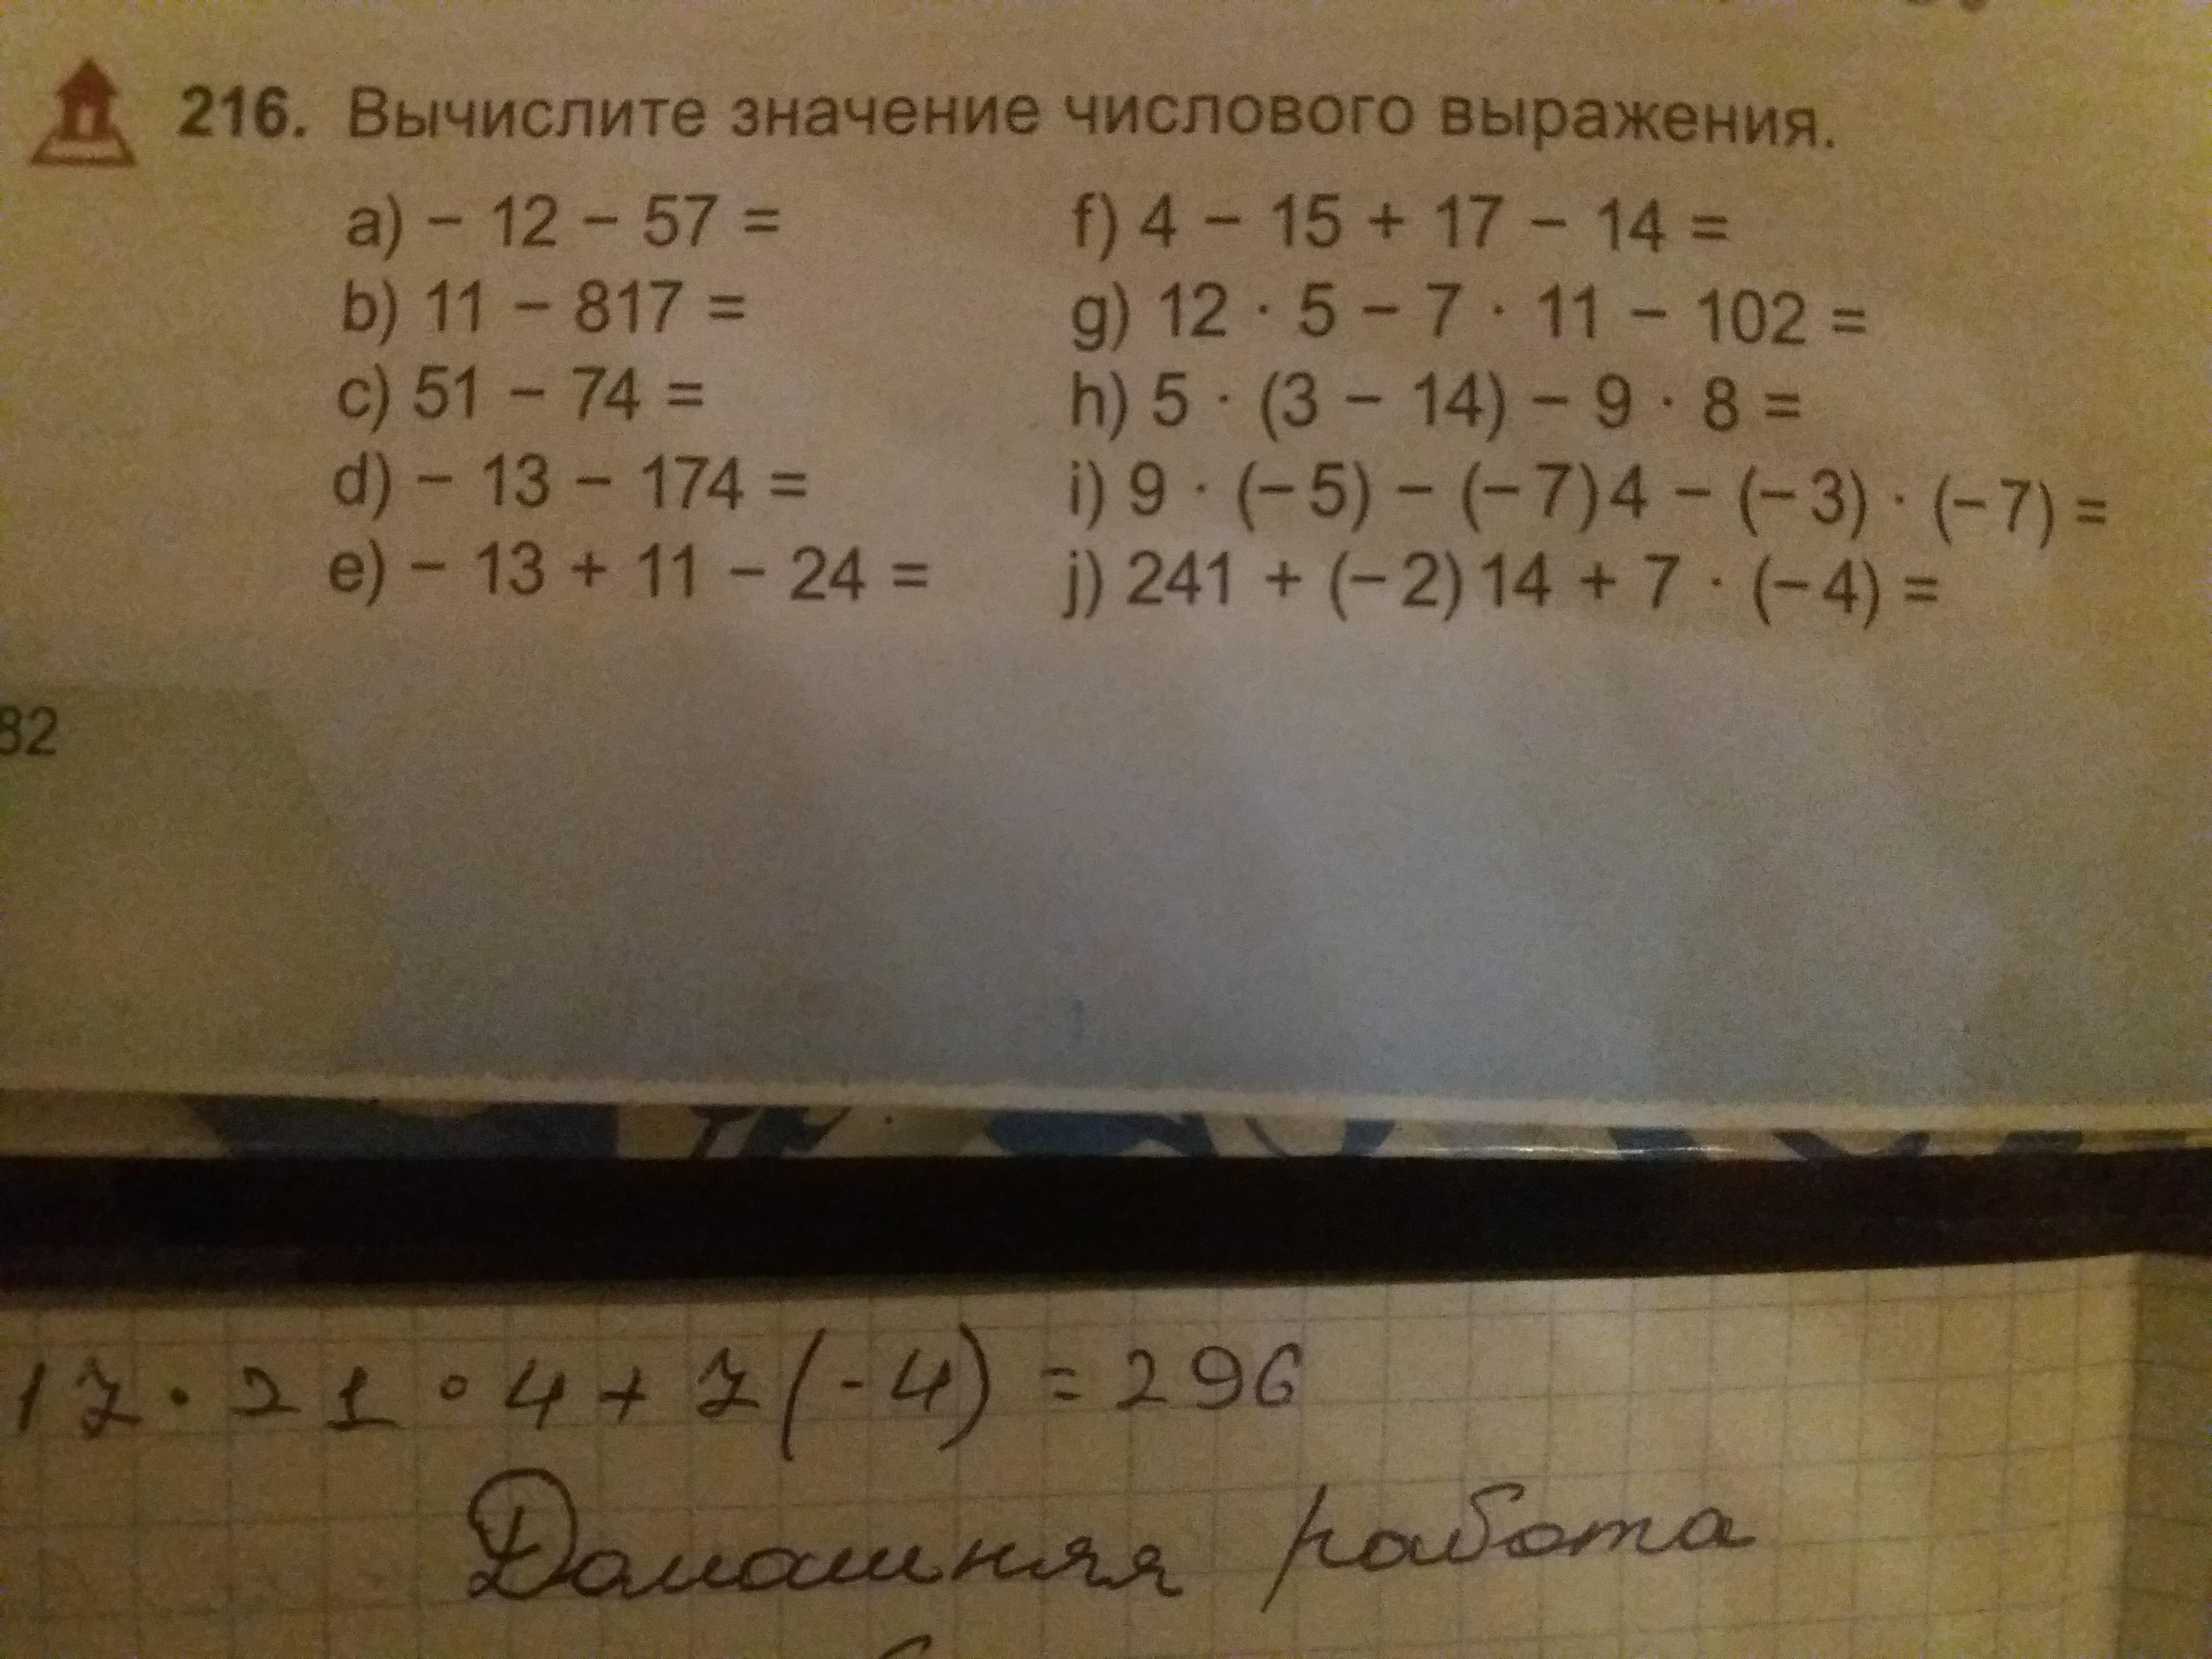 216. Вычислите значение числового выражения.
a) – 12 – 57 =
b) 11 – 817 =
c) 51 – 74 =
d) – 13 – 174 =
e) – 13 + 11 – 24 =
f) 4 – 15 + 17 – 14 =
g) 12 · 5 – 7 · 11 – 102 =
h) 5 · (3 – 14) – 9 · 8 =
i) 9 · (– 5) – (– 7)4 – (– 3) · (– 7) =
j) 241 + (– 2)14 + 7 · (– 4) =
82
17 · 21 · 4 + 7(-4) = 296
Домашняя работа